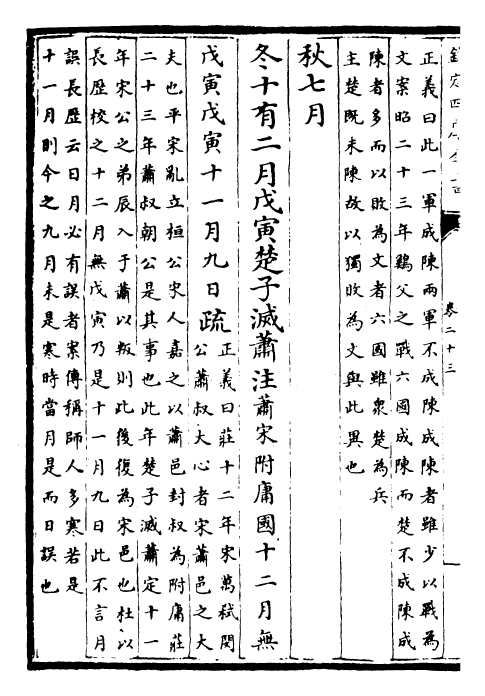 欽定四庫全書
卷二十三
正義曰此一軍成陳兩軍不成陳成陳者雖少以戰為
文案昭二十三年鷄父之戰六國成陳而楚不成陳成
陳者多而以敗為文者六國雖衆楚為兵
主楚既未陳故以獨敗為文與此異也
秋七月
冬十有二月戊寅楚子滅蕭注蕭宋附庸國十二月無
戊寅戊寅十一月九日疏正義曰莊十二年宋萬弑閔
公蕭叔大心者宋蕭邑之大
夫也平宋亂立桓公宋人嘉之以蕭邑封叔為附庸莊
二十三年蕭叔朝公是其事也此年楚子滅蕭定十一
年宋公之弟辰入于蕭以叛則此後復為宋邑也杜以
長歴校之十二月無戊寅乃是十一月九日此不言月
誤長歴云日月必有誤者案傳稱師人多寒若是
十一月則今之九月未是寒時當月是而日誤也